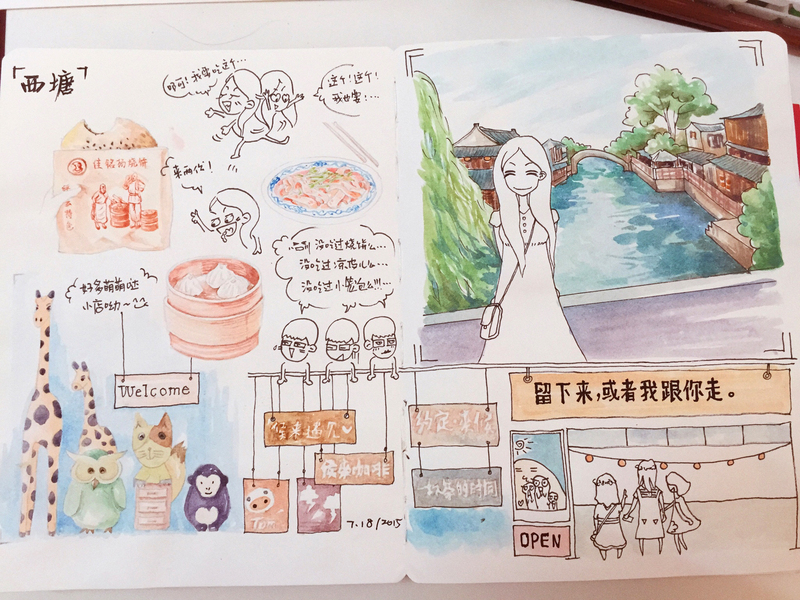 西塘
啊啊！我要吃这个…
这个！这个！
我也要！…
佳铭狗烧饼
来两份！
没吃过烧饼么…
没吃过凉皮儿么…
没吃过小笼包么!!!…
好多萌萌哒
小店呦~
Welcome
后来遇见
后来咖啡
7.18/2015
留下来,或者我跟你走。
约定·来信
OPEN